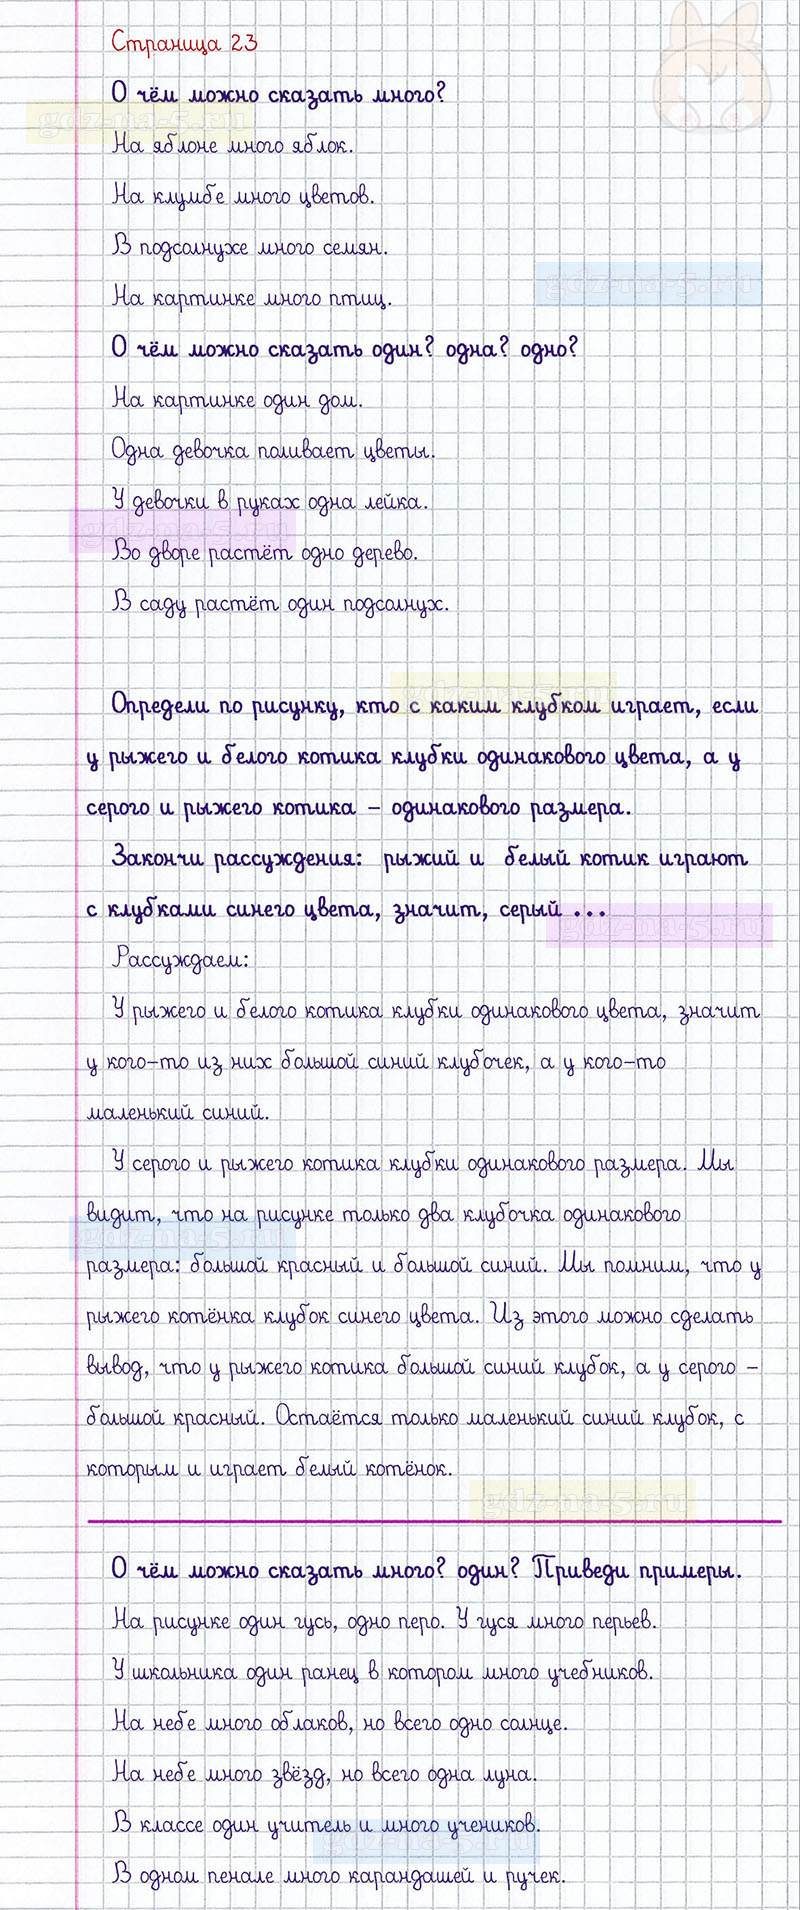 Страница 23
О чём можно сказать много?
gdz-na-5.ru
На яблоне много яблок.
На клумбе много цветов.
В подсолнухе много семян.
gdz-na-5.ru
На картинке много птиц.
О чём можно сказать один? одна? одно?
На картинке один дом.
Одна девочка поливает цветы.
У девочки в руках одна лейка.
gdz-na-5.ru
Во дворе растёт одно дерево.
В саду растёт один подсолнух.
gdz-na-5.ru
Определи по рисунку, кто с каким клубком играет, если
у рыжего и белого котика клубки одинакового цвета, а у
серого и рыжего котика – одинакового размера.
Закончи рассуждения: рыжий и белый котик играют
с клубками синего цвета, значит, серый ...
gdz-na-5.ru
Рассуждаем:
У рыжего и белого котика клубки одинакового цвета, значит
у кого-то из них большой синий клубочек, а у кого-то
маленький синий.
У серого и рыжего котика клубки одинакового размера. Мы
видит, что на рисунке только два клубочка одинакового
gdz-na-5.ru
размера: большой красный и большой синий. Мы помним, что у
рыжего котёнка клубок синего цвета. Из этого можно сделать
вывод, что у рыжего котика большой синий клубок, а у серого –
большой красный. Остаётся только маленький синий клубок, с
которым и играет белый котёнок.
gdz-na-5.ru
О чём можно сказать много? один? Приведи примеры.
На рисунке один гусь, одно перо. У гуся много перьев.
У школьника один ранец в котором много учебников.
На небе много облаков, но всего одно солнце.
На небе много звёзд, но всего одна луна.
В классе один учитель и много учеников.
gdz-na-5.ru
В одном пенале много карандашей и ручек.